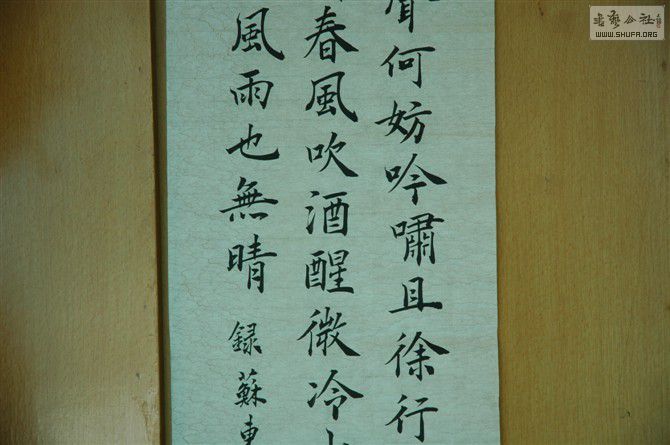 何妨吟嘯且徐行
春風吹酒醒微冷
風雨也無晴
録蘇東
書藝公社
WWW.SHUFA.ORG